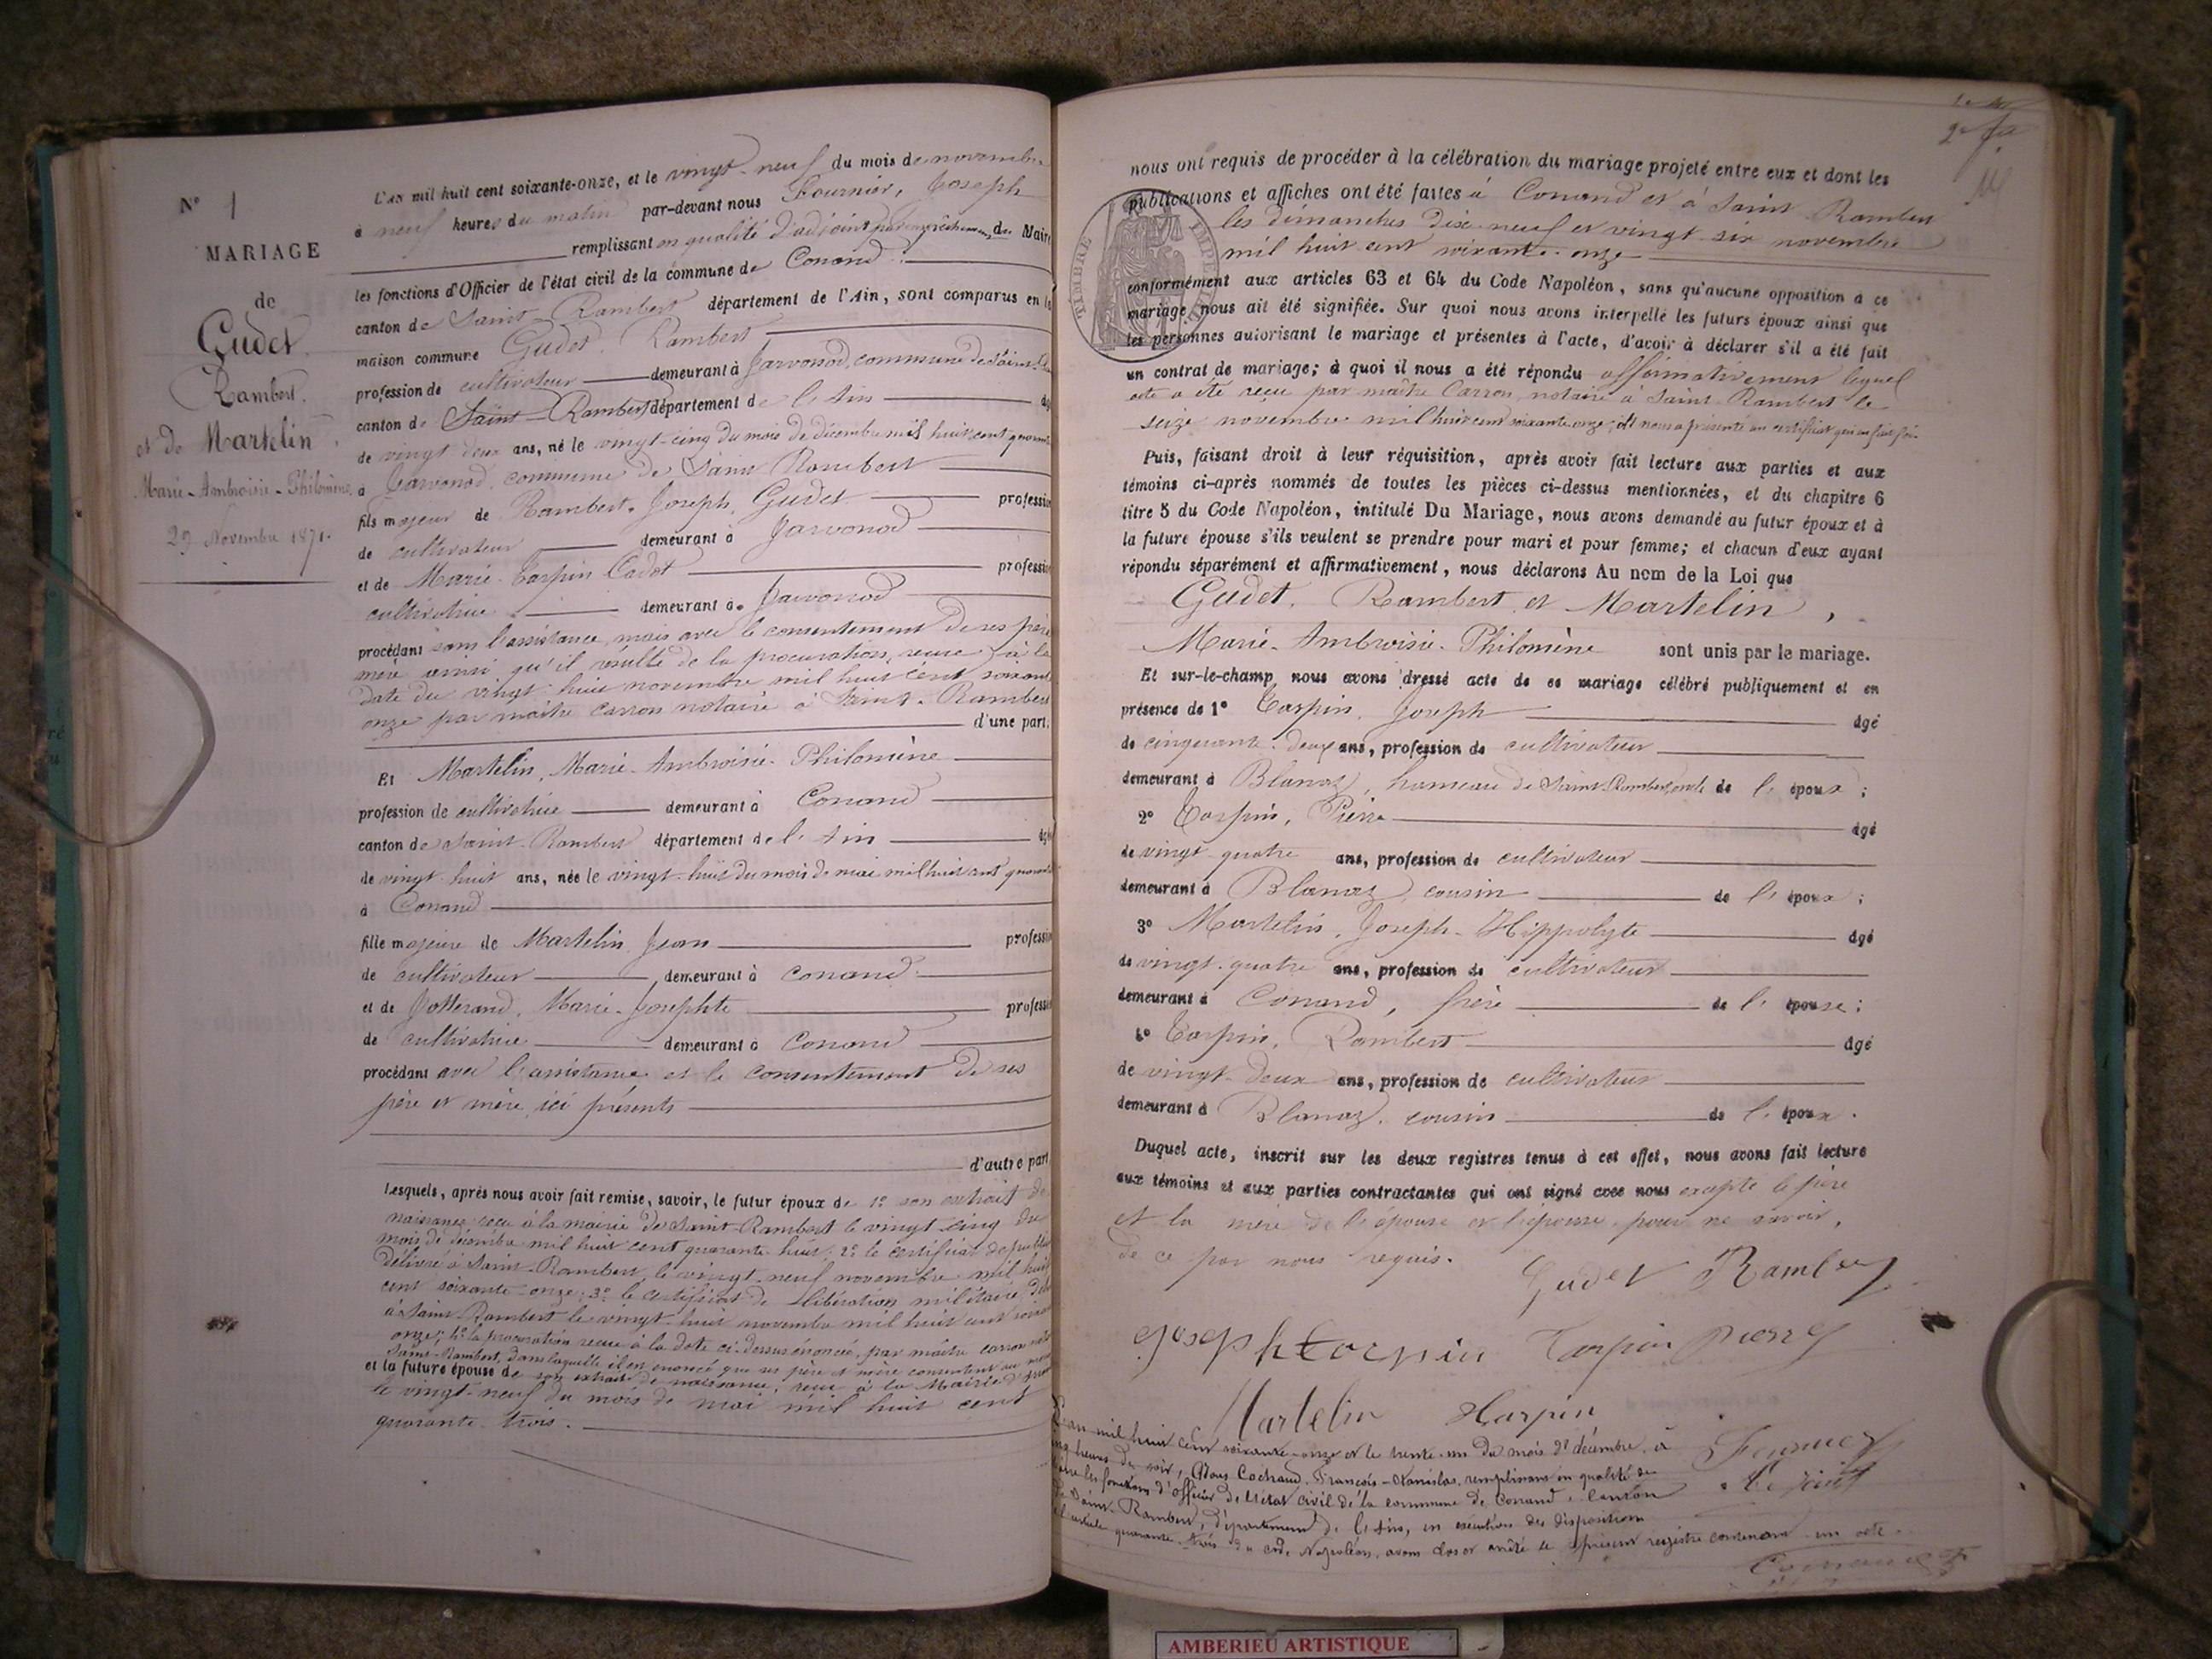 N° 1
MARIAGE
de
Gudet
Rambert.
et de Martelin
Marie-Ambroisie-Philomène
29 Novembre 1871.
L'an mil huit cent soixante-onze, et le vingt-neuf du mois de novembre
à neuf heures du matin par-devant nous Fournier, Joseph
remplissant en qualité d'adjoint par empêchement du Maire
les fonctions d'Officier de l'état civil de la commune de Conand
canton de Saint-Rambert département de l'Ain, sont comparus en la
maison commune Gudet, Rambert
profession de cultivateur demeurant à Javornod, commune de Saint
canton de Saint-Rambert département de l'Ain âgé
de vingt-deux ans, né le vingt-cinq du mois de décembre mil huit cent quarante
à Javornod, commune de Saint Rambert
fils majeur de Rambert-Joseph, Gudet profession
de cultivateur demeurant à Javornod
et de Marie Tarpin Cadot profession
cultivatrice demeurant à Javornod
procédant sans l'assistance, mais avec le consentement de ses père
mère ainsi qu'il résulte de la procuration, reçue à la
date du vingt-huit novembre mil huit cent soixante
onze par maître Carron notaire à Saint-Rambert
d'une part;
Et Martelin, Marie-Ambroisie-Philomène
profession de cultivatrice demeurant à Conand
canton de Saint-Rambert département de l'Ain âgée
de vingt-huit ans, née le vingt-huit du mois de mai mil huit cent quarante
à Conand
fille majeure de Martelin, Jean profession
de cultivateur demeurant à Conand
et de Jotterand, Marie-Josephte profession
de cultivatrice demeurant à Conand
procédant avec l'assistance et le consentement de ses
père et mère, ici présents
d'autre part,
Lesquels, après nous avoir fait remise, savoir, le futur époux de 1° son extrait de
naissance reçu à la mairie de Saint-Rambert le vingt-cinq du
mois de décembre mil huit cent quarante-huit; 2° le certificat de
délivré à Saint-Rambert, le vingt-neuf novembre mil huit
cent soixante-onze; 3° le certificat de libération militaire
à Saint-Rambert le vingt-huit novembre mil huit cent
onze; 4° la procuration reçue à la date ci-dessus énoncée, par maître Carron
Saint-Rambert, dans laquelle il est énoncé que ses père et mère consentent au
et la future épouse de son extrait de naissance, reçu à la Mairie
le vingt-neuf du mois de mai mil huit cent
quarante-trois.
nous ont requis de procéder à la célébration du mariage projeté entre eux et dont les
publications et affiches ont été faites à Conand et à Saint-Rambert
les dimanches dix-neuf et vingt-six novembre
mil huit cent soixante-onze
TIMBRE IMPERIAL
conformément aux articles 63 et 64 du Code Napoléon, sans qu'aucune opposition à ce
mariage nous ait été signifiée. Sur quoi nous avons interpellé les futurs époux ainsi que
les personnes autorisant le mariage et présentes à l'acte, d'avoir à déclarer s'il a été fait
un contrat de mariage; à quoi il nous a été répondu affirmativement lequel
acte a été reçu par maître Carron, notaire à Saint-Rambert le
seize novembre mil huit cent soixante-onze; il nous a présenté un certificat qui en fait foi.
Puis, faisant droit à leur réquisition, après avoir fait lecture aux parties et aux
témoins ci-après nommés de toutes les pièces ci-dessus mentionnées, et du chapitre 6
titre 5 du Code Napoléon, intitulé Du Mariage, nous avons demandé au futur époux et à
la future épouse s'ils veulent se prendre pour mari et pour femme; et chacun d'eux ayant
répondu séparément et affirmativement, nous déclarons Au nom de la Loi que
Gudet, Rambert et Martelin,
Marie-Ambroisie-Philomène sont unis par le mariage.
Et sur-le-champ nous avons dressé acte de ce mariage célébré publiquement et en
présence de 1° Tarpin, Joseph âgé
de cinquante-deux ans, profession de cultivateur
demeurant à Blanaz, hameau de Saint-Rambert, oncle de l'époux;
2° Tarpin, Pierre âgé
de vingt-quatre ans, profession de cultivateur
demeurant à Blanaz, cousin de l'époux;
3° Martelin, Joseph-Hippolyte âgé
de vingt-quatre ans, profession de cultivateur
demeurant à Conand, frère de l'épouse;
4° Tarpin, Rambert âgé
de vingt-deux ans, profession de cultivateur
demeurant à Blanaz, cousin de l'époux.
Duquel acte, inscrit sur les deux registres tenus à cet effet, nous avons fait lecture
aux témoins et aux parties contractantes qui ont signé avec nous excepté le père
et la mère de l'épouse et l'épouse pour ne savoir,
de ce par nous requis.
Gudet Rambert
Joseph tarpin Tarpin Pierre
Martelin tarpin
Fournier
Adjoint
L'an mil huit cent soixante-onze et le trente-un du mois de décembre, à
cinq heures du soir, Nous Cochand, François-Stanislas, remplissant en qualité de
Maire les fonctions d'officier de l'état civil de la commune de Conand, canton
de Saint-Rambert, département de l'Ain, en exécution des dispositions
de l'article quarante-trois du code Napoléon, avons clos et arrêté le présent registre contenant un acte.
AMBERIEU ARTISTIQUE